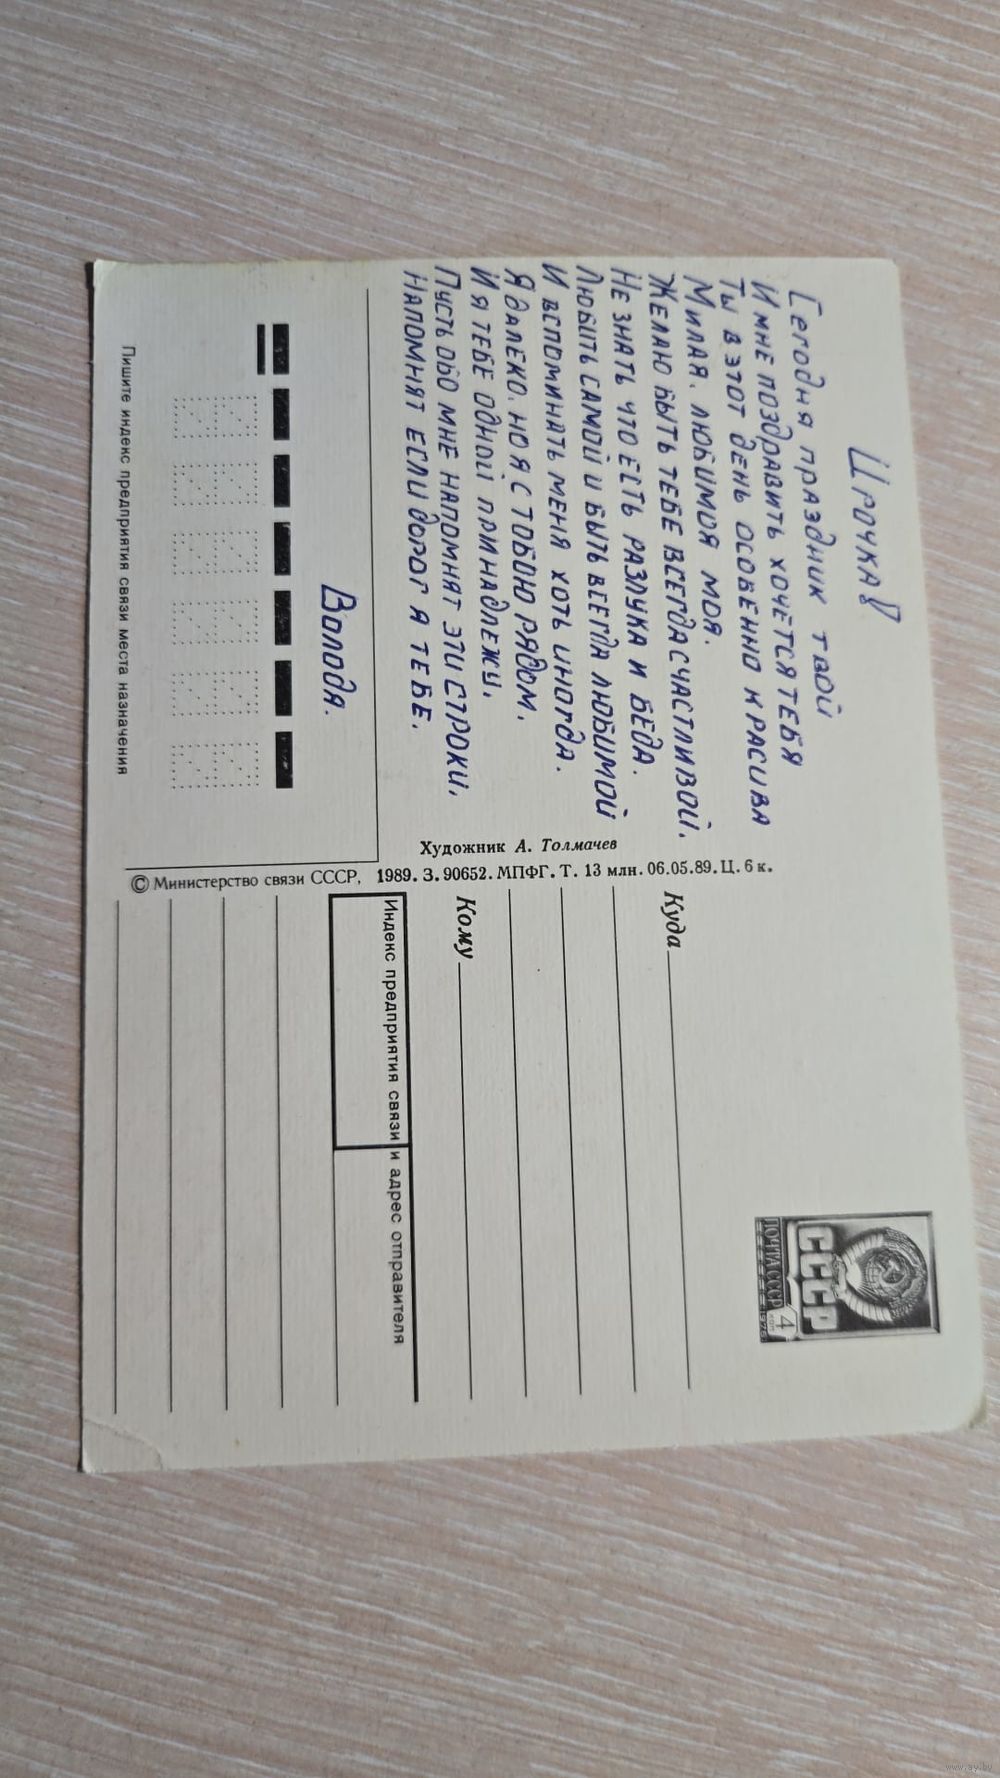 Ирочка!
Сегодня праздник твой
И мне поздравить хочется тебя
Ты в этот день особенно красива
Милая. любимоя моя.
Желаю быть тебе всегда счастливой.
Не знать что есть разлука и беда.
Любить самой и быть всегда любимой
И вспоминать меня хоть иногда.
Я далеко. но я с тобою рядом.
И я тебе одной принадлежу.
Пусть обо мне напомнят эти строки.
Напомнят если дорог я тебе.
Володя.
Пишите индекс предприятия связи места назначения
Художник А. Толмачев
© Министерство связи СССР, 1989. З. 90652. МПФГ. Т. 13 млн. 06.05.89. Ц. 6 к.
СССР
ПОЧТА СССР
4
КОП
1976
Куда
Кому
Индекс предприятия связи и адрес отправителя
www.ay.by